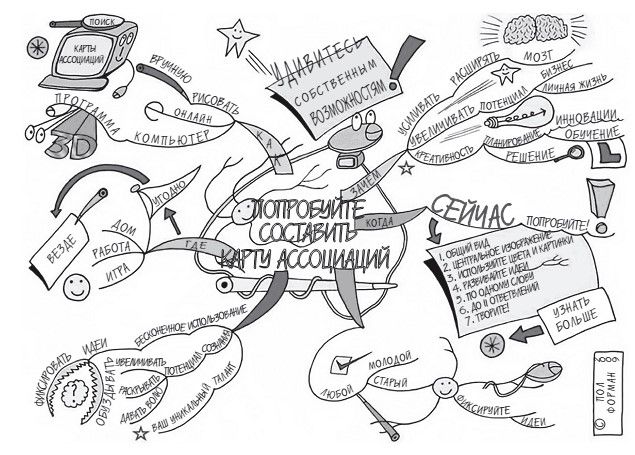 ПОИСК
КАРТЫ
АССОЦИАЦИЙ
ВРУЧНУЮ
РИСОВАТЬ
ОНЛАЙН
ПРОГРАММА
КОМПЬЮТЕР
3D
КАК
УДИВИТЕСЬ
СОБСТВЕННЫМ
ВОЗМОЖНОСТЯМ
ЗАЧЕМ
УСИЛИВАТЬ
РАСШИРЯТЬ
МОЗГ
УВЕЛИЧИВАТЬ
ПОТЕНЦИАЛ
БИЗНЕС
ЛИЧНАЯ ЖИЗНЬ
КРЕАТИВНОСТЬ
ПЛАНИРОВАНИЕ
ИННОВАЦИИ
ОБУЧЕНИЕ
РЕШЕНИЕ
ПОПРОБУЙТЕ
СОСТАВИТЬ
КАРТУ АССОЦИАЦИЙ
КОГДА
СЕЙЧАС
ПОПРОБУЙТЕ!
1. ОБЩИЙ ВИД
2. ЦЕНТРАЛЬНОЕ ИЗОБРАЖЕНИЕ
3. ИСПОЛЬЗУЙТЕ ЦВЕТА И КАРТИНКИ
4. РАЗВИВАЙТЕ ИДЕИ
5. ПО ОДНОМУ СЛОВУ
6. ДО 11 ОТВЕТВЛЕНИЙ
7. ТВОРИТЕ!
УЗНАТЬ
БОЛЬШЕ
ГДЕ
УГОДНО
ВЕЗДЕ
ДОМ
РАБОТА
ИГРА
БЕСКОНЕЧНОЕ ИСПОЛЬЗОВАНИЕ
ФИКСИРОВАТЬ
ИДЕИ
ОБУЗДЫВАТЬ
УВЕЛИЧИВАТЬ
ПОТЕНЦИАЛ
СОЗНАНИЯ
РАСКРЫВАТЬ
ДАВАТЬ ВОЛЮ
ВАШ УНИКАЛЬНЫЙ ТАЛАНТ
МОЛОДОЙ
СТАРЫЙ
ЛЮБОЙ
ФИКСИРУЙТЕ
ИДЕИ
© ПОЛ
ФОРМАН